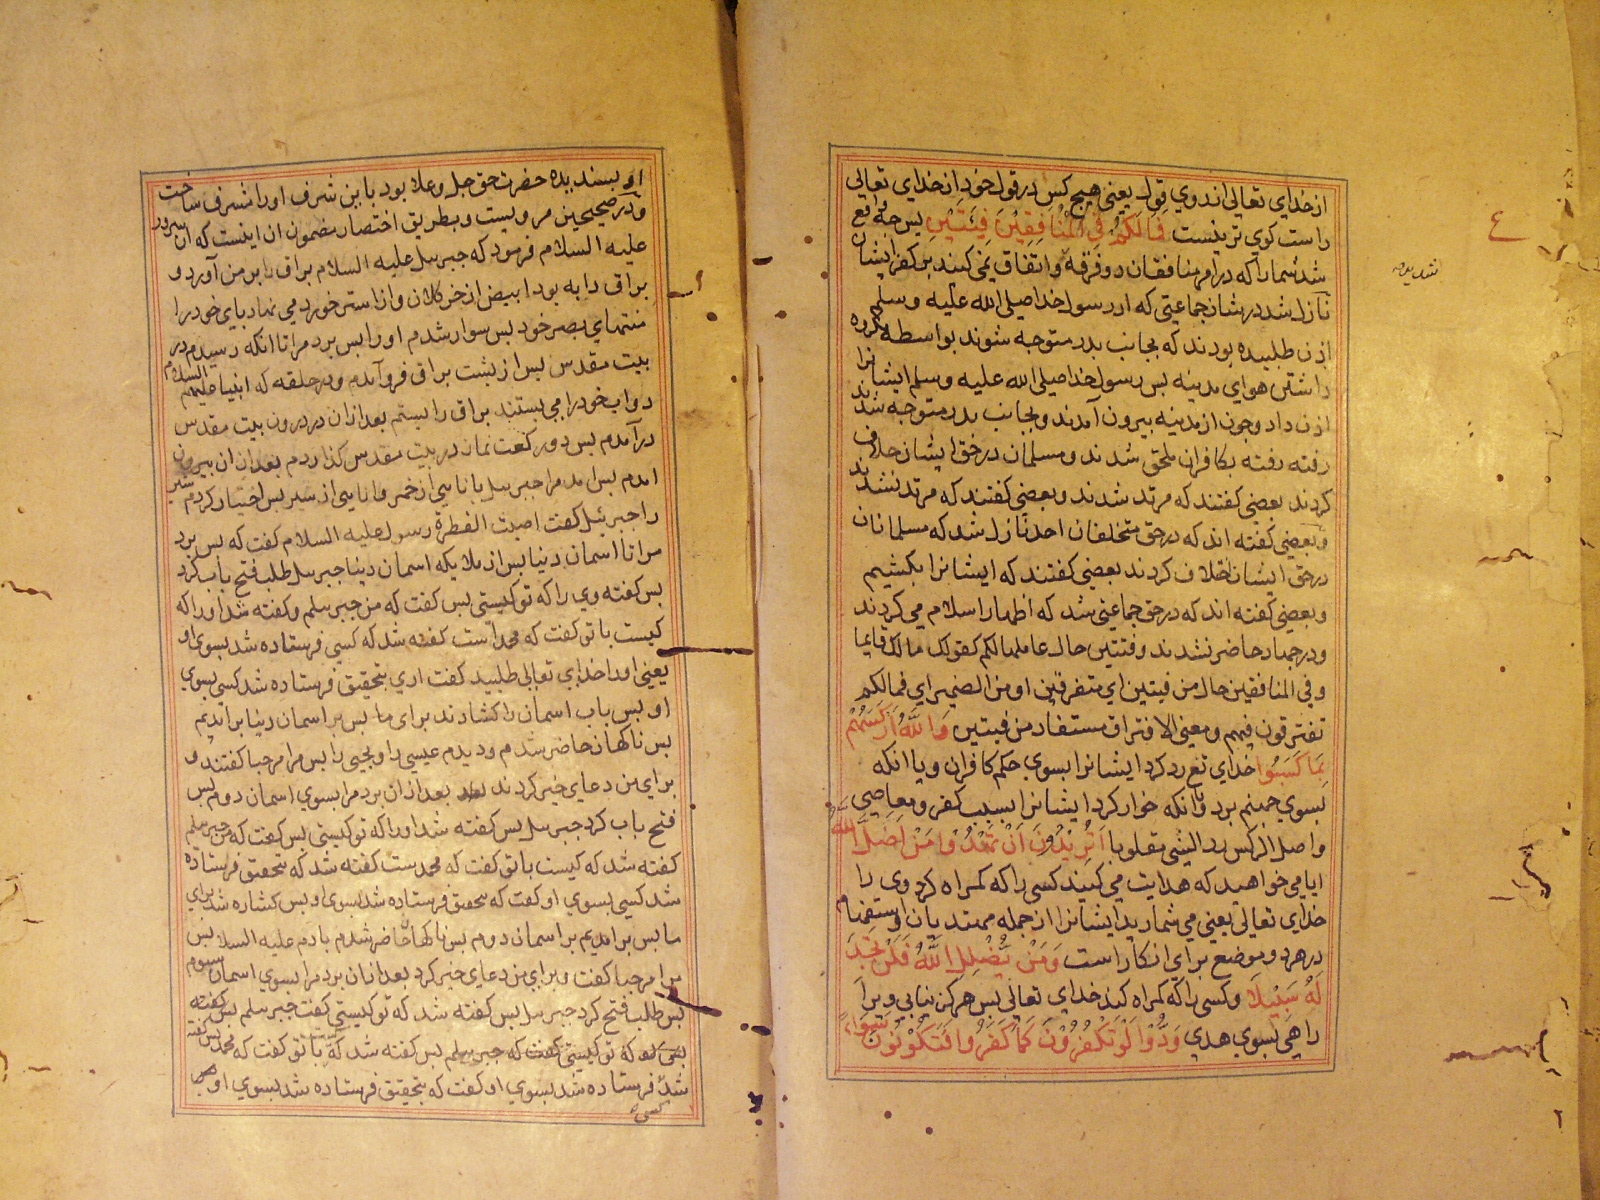 از خدای تعالی اندوی قول یعنی هیچ کس در قول خود از خدای تعالی
راست کوی تر نیست فَمَا لَكُمْ فِی الْمُنَافِقِیْنَ فِئَتَیْنِ پس چه واقع
شد شما را که در امر منافقان دو فرقه و اتفاق نمی کنید بر کفر ایشان
نازل شد در شان جماعتی که از رسول خدا صلی الله علیه و سلم
اذن طلبیده بودند که بجانب بدر متوجه شوند بواسطه مکروه
داشتن هوای مدینه بس رسول خدا صلی الله علیه و سلم ایشانرا
اذن داد و چون از مدینه بیرون آمدند و بجانب بدر متوجه شدند
رفته رفته بکافران ملحق شدند و مسلمانان در حق ایشان خلاف
کردند بعضی کفتند که مرتد شدند و بعضی کفتند که مرتد نشدند
و بعضی کفته اند که در حق متخلفان احد نازل شد که مسلمانان
در حق ایشان اختلاف کردند بعضی کفتند که ایشانرا بکشیم
و بعضی کفته اند که در حق جماعتی شد که اظهار اسلام می کردند
و در جهاد حاضر نشدند و فئتین حال عاملها لکم کقولک مالک قایما
و فی المنافقین حال من فیتین ای متفرقین او من الضمیر ای فمالکم
تفترقون فیهم و معنی الافتراق مستفاد من فیتین وَاللّٰهُ اَرْكَسَهُمْ
بِمَا كَسَبُوا خدای تع رد کرد ایشانرا بسوی حکم کافران و یا انکه
بسوی جهنم برد و یا انکه خوار کرد ایشانرا بسبب کفر و معاصی
و اصل الرکس رد الشی مقلوبا اَتُرِیْدُوْنَ اَنْ تَهْدُوْا مَنْ اَضَلَّ اللّٰهُ
ایا می خواهید که هدایت می کنید کسی را که کمراه کرد وی را
خدای تعالی یعنی می شمارید ایشانرا از جمله مهتدیان و استفهام
در هر دو موضع برای انکار است وَمَنْ یُّضْلِلِ اللّٰهُ فَلَنْ تَجِدَ
لَهُ سَبِیْلًا و کسی را که کمراه کند خدای تعالی بس هرکز نیابی ویرا
راهی بسوی هدی وَدُّوْا لَوْ تَكْفُرُوْنَ كَمَا كَفَرُوْا فَتَكُوْنُوْنَ سَوَاءً
ع
او بسندیده حضرت حق جل و علا بود باین شرف او را مشرف ساخت
و در صحیحین مرویست و بطریق اختصار مضمون ان اینست که ان سرور
علیه السلام فرمود که جبرییل علیه السلام براق را بر من آورد و
براق دابه بود ابیض از خر کلان و از استر خورد می نهاد پای خود را
منتهای بصر خود بس سوار شدم او را بس برد مرا تا انکه رسیدم در
بیت مقدس بس از پشت براق فرو آمدم و در حلقه که انبیا علیهم السلام
دواب خود را می بستند براق را بستم بعد از ان در درون بیت مقدس
درآمدم بس دو رکعت نماز در بیت مقدس کذاردم بعد از ان بیرون
امدم بس امد مرا جبرییل با نایی از خمر و انایی از شیر بس اختیار کردم شیر
را جبرییل کفت اصبت الفطرة رسول علیه السلام کفت که بس برد
مرا تا اسمان دنیا بس از ملایکه اسمان دینا جبرییل طلب فتح باب کرد
بس کفته وی را که تو کیستی بس کفت که من جبرییلم و کفته شد او را که
کیست با تو کفت که محمد است کفته شد که کسی فرستاده شد بسوی او
یعنی او را خدای تعالی طلبید کفت اری بتحقیق فرستاده شد کسی بسوی
او بس باب اسمان را کشادند برای ما بس بر اسمان دینا برامدیم
بس ناکهان حاضر شدم و دیدم عیسی را و یحیی را بس مرا مرحبا کفتند و
برای من دعای خیر کردند بعد از ان برد مرا بسوی اسمان دوم بس
فتح باب کرد جبرییل بس کفته شد او را که تو کیستی بس کفت که من جبرییلم
کفته شد که کیست با تو کفت که محمدست کفته شد که بتحقیق فرستاده
شد کسی بسوی او کفت که بتحقیق فرستاده شد بسوی او بس کشاده شد برای
ما بس برامدیم بر اسمان دوم بس ناکهان حاضر شدم بادم علیه السلام بس
مرا مرحبا کفت و برای من دعای خیر کرد بعد از ان برد مرا بسوی اسمان سیوم
بس طلب فتح کرد جبرییل بس کفته شد که تو کیستی کفت جبرییلم بس کفته
که تو کیستی کفت که جبرییلم بس کفته شد که با تو کفت که محمد بس کفته
شد فرستاده شد بسوی او کفت که بتحقیق فرستاده شد بسوی او